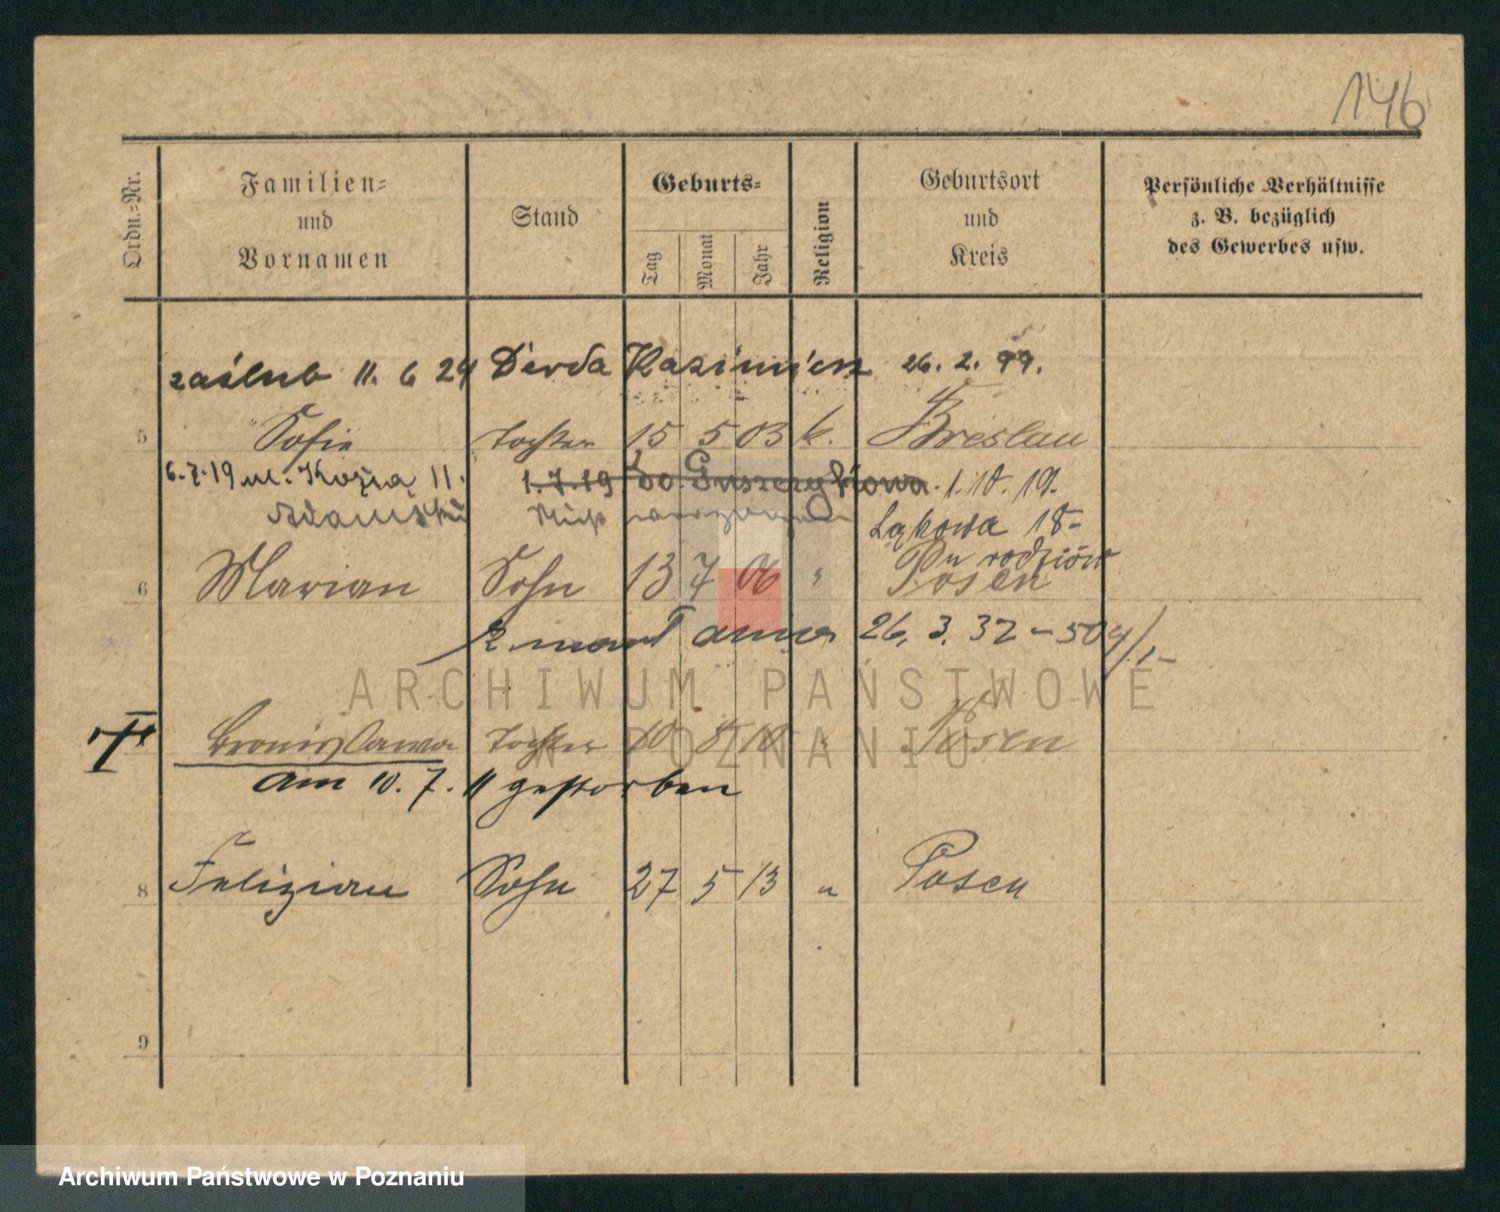 146
Ordn.-Nr.
Familien-
und
Vornamen
Stand
Geburts-
Tag
Monat
Jahr
Religion
Geburtsort
und
Kreis
Persönliche Verhältnisse
z. B. bezüglich
des Gewerbes usw.
zaślub 11. 6 24 Derda Kazimierz 26. 2. 99.
5 Sofie Tochter 15 5 03 k. Breslau
6.7.19 ul. Kozia 11. 1.7.19 do 1.10.19.
Adamski Łąkowa 18-
u rodziców
6 Marian Sohn 13 7 06 " Posen
26. 3. 32 - 504/1-
Bronislawa Tochter 10 8 10 " Posen
am 10. 7. 11 gestorben
8 Felizian Sohn 27 5 13 " Posen
9
ARCHIWUM PAŃSTWOWE
W POZNANIU
Archiwum Państwowe w Poznaniu